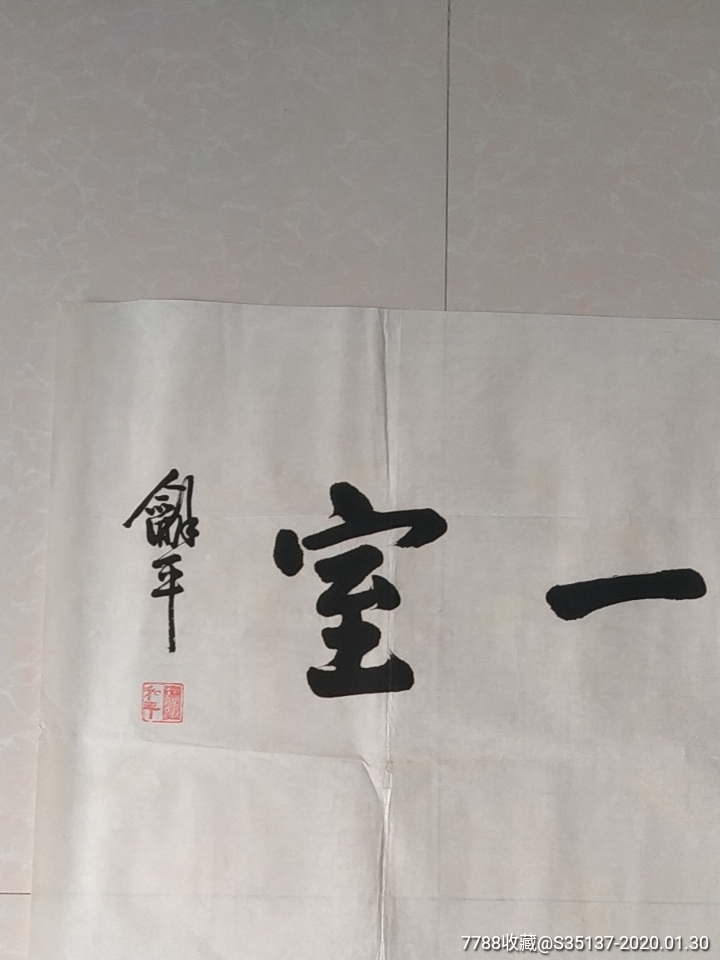 一室
龢平
和平
7788收藏@S35137-2020.01.30